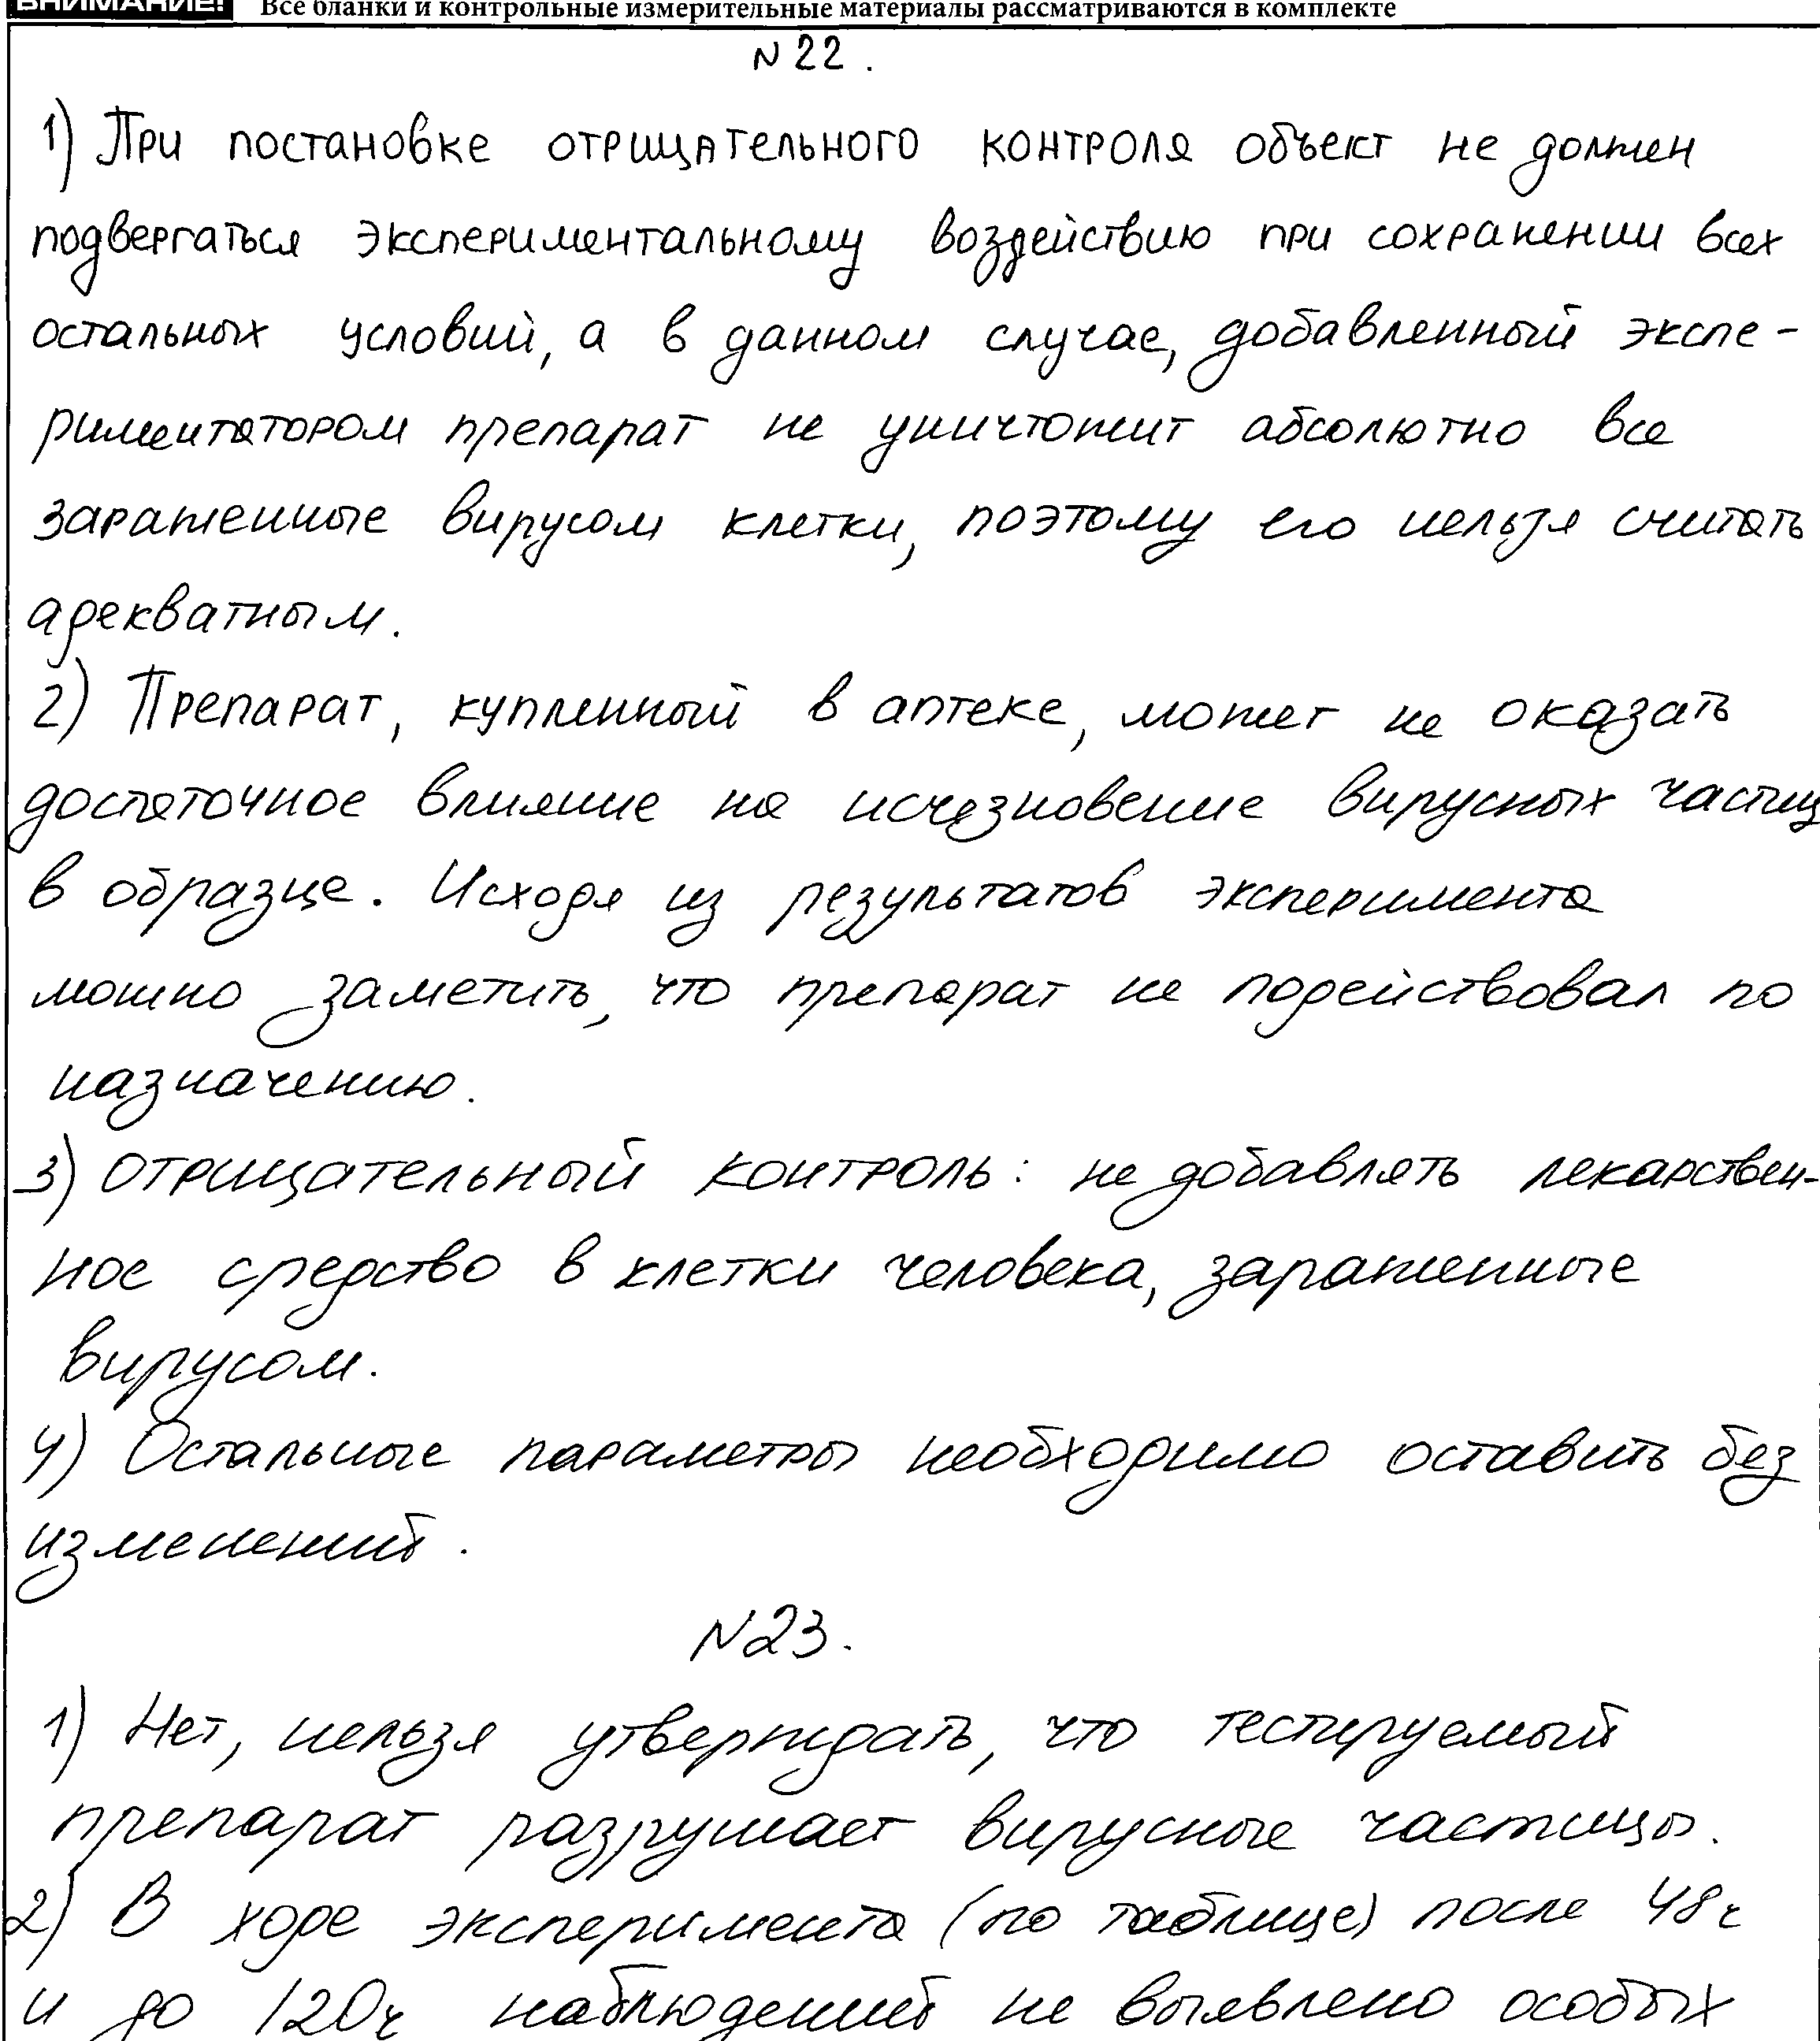 ВНИМАНИЕ! Все бланки и контрольные измерительные материалы рассматриваются в комплекте
N 22.
1) При постановке отрицательного контроля объект не должен
подвергаться экспериментальному воздействию при сохранении всех
остальных условий, а в данном случае, добавленный экспе-
риментатором препарат не уничтожит абсолютно все
зараженные вирусом клетки, поэтому его нельзя считать
адекватным.
2) Препарат, купленный в аптеке, может не оказать
достаточное влияние на исчезновение вирусных частиц
в образце. Исходя из результатов эксперимента
можно заметить, что препарат не подействовал по
назначению.
3) Отрицательный контроль: не добавлять лекарствен-
ное средство в клетки человека, зараженные
вирусом.
4) Остальные параметры необходимо оставить без
изменений.
N23.
1) Нет, нельзя утверждать, что тестируемый
препарат разрушает вирусные частицы.
2) В ходе эксперимента (по таблице) после 48ч
и до 120ч наблюдений не выявлено особых